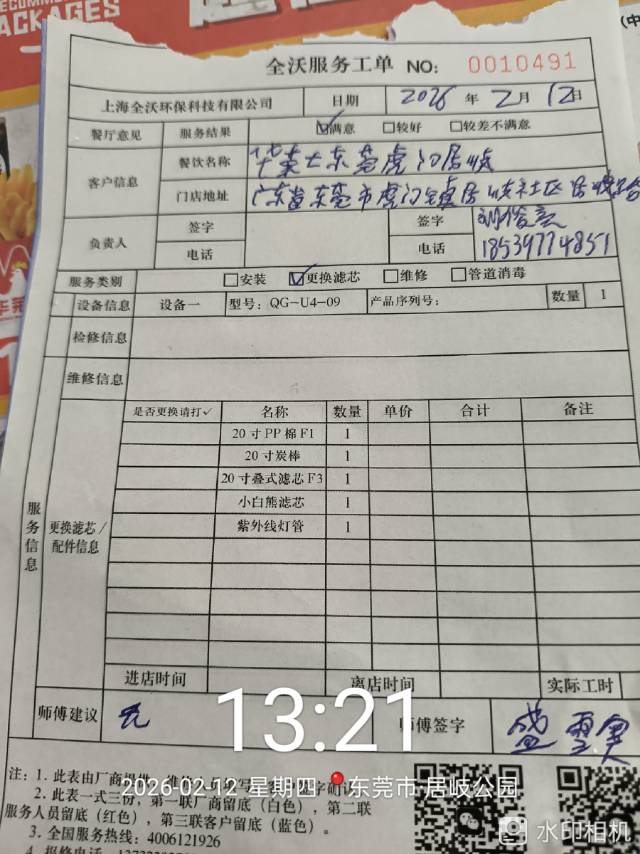 ECOMMENDED
PACKAGES
全沃服务工单 NO: 0010491
上海全沃环保科技有限公司 日期 2026 年 2 月 12 日
餐厅意见 服务结果 ☑满意 □较好 □较差不满意
客户信息 餐饮名称 华莱士东莞虎门居岐
门店地址 广东省东莞市虎门镇居岐社区居岐
负责人 签字 签字
电话 电话 18539774851
服务类别 □安装 ☑更换滤芯 □维修 □管道消毒
设备信息 设备一 型号: QG-U4-09 产品序列号: 数量 1
检修信息
维修信息
服务信息
更换滤芯/配件信息
是否更换请打✓ 名称 数量 单价 合计 备注
20寸PP棉F1 1
20寸炭棒 1
20寸叠式滤芯F3 1
小白熊滤芯 1
紫外线灯管 1
进店时间 离店时间 实际工时
师傅建议 无 师傅签字 盛
13:21
2026-02-12 星期四 东莞市·居岐公园
注: 1. 此表由厂商提供
2. 此表一式三份, 第一联厂商留底(白色), 第二联
服务人员留底(红色), 第三联客户留底(蓝色)。
3. 全国服务热线: 4006121926
4. 报修电话
水印相机